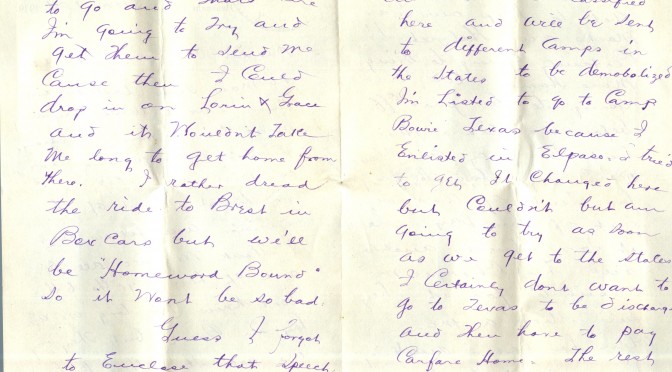 to go and
I'm going to Try and
get Them to send me
Cause then I Could
drop in on Lorin & Grace
and it Wouldn't Take
Me long to get home from
there. I rather dread
the ride to Brest in
Box Cars but we'll
be "Homeword Bound"
so it Wont be so bad.
Guess I forgot
to Enclose that Speech
classified
here and will be sent
to different Camps in
the States to be demobolized
I'm Listed to go to Camp
Bowie Texas because I
Enlisted in Elpaso. I tried
to get It Changed here
but Couldn't but am
going to try as soon
as we get to the States
I Certainly dont want to
go to Texas to be discharg
and then have to pay
Carfare Home. The rest